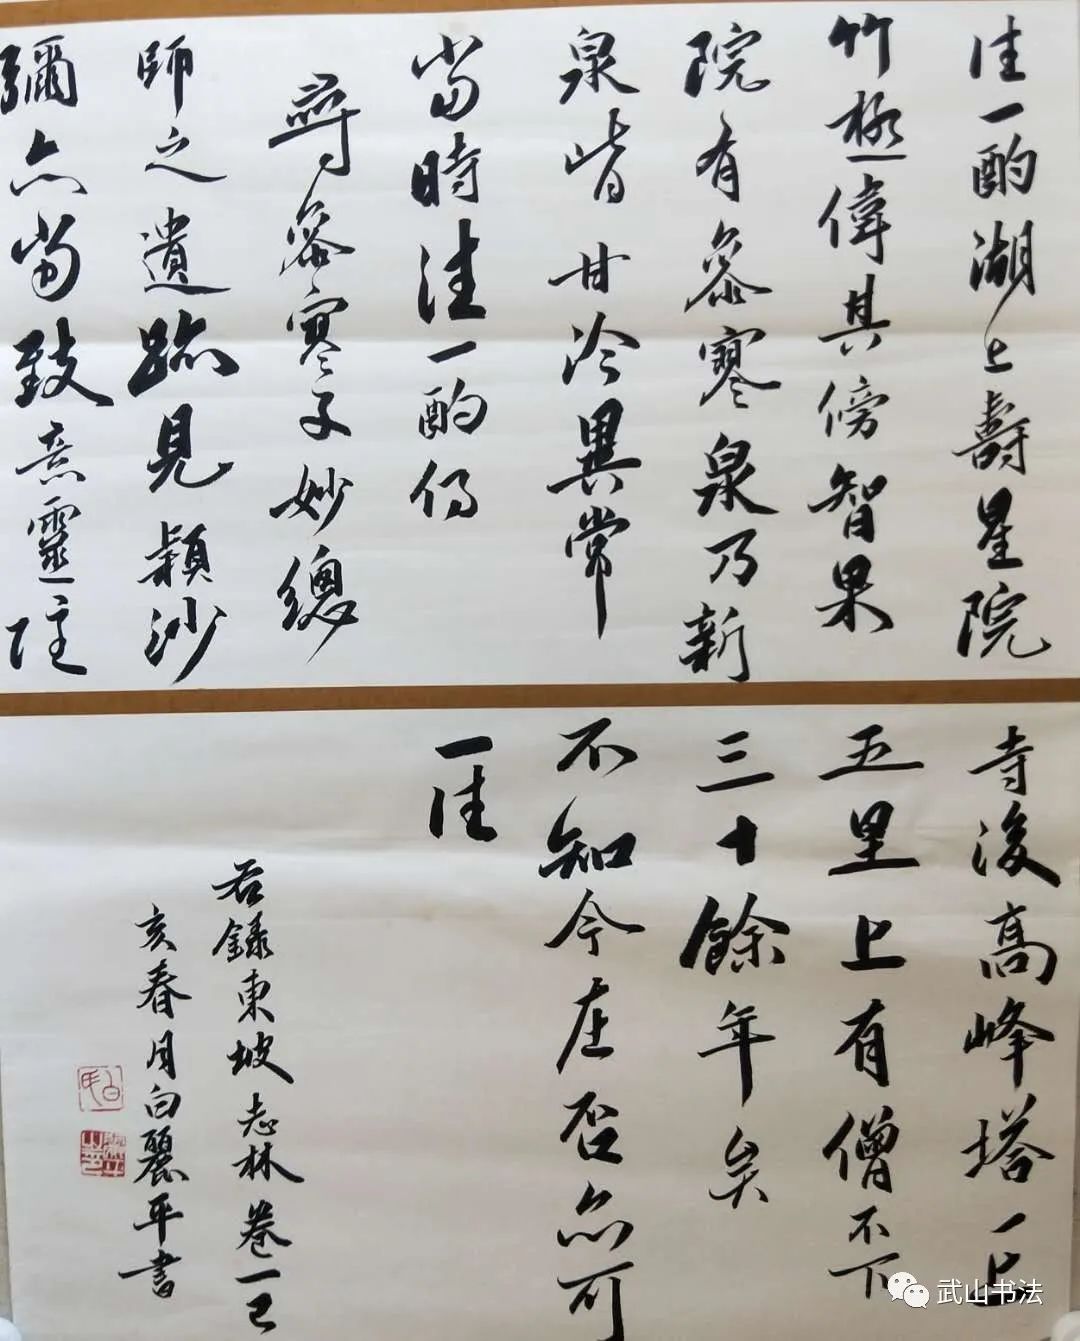 往一酌湖上壽星院
竹極偉其傍智果
院有參寥泉及新
泉皆甘冷異常
當時往一酌仍
尋參寥子妙總
師之遺跡見穎沙
彌亦當致意靈隱
寺後高峰塔一上
五里上有僧不下
三十餘年矣
不知今在否亦可
一往
右錄東坡志林卷一己
亥春月白麗平書
武山书法